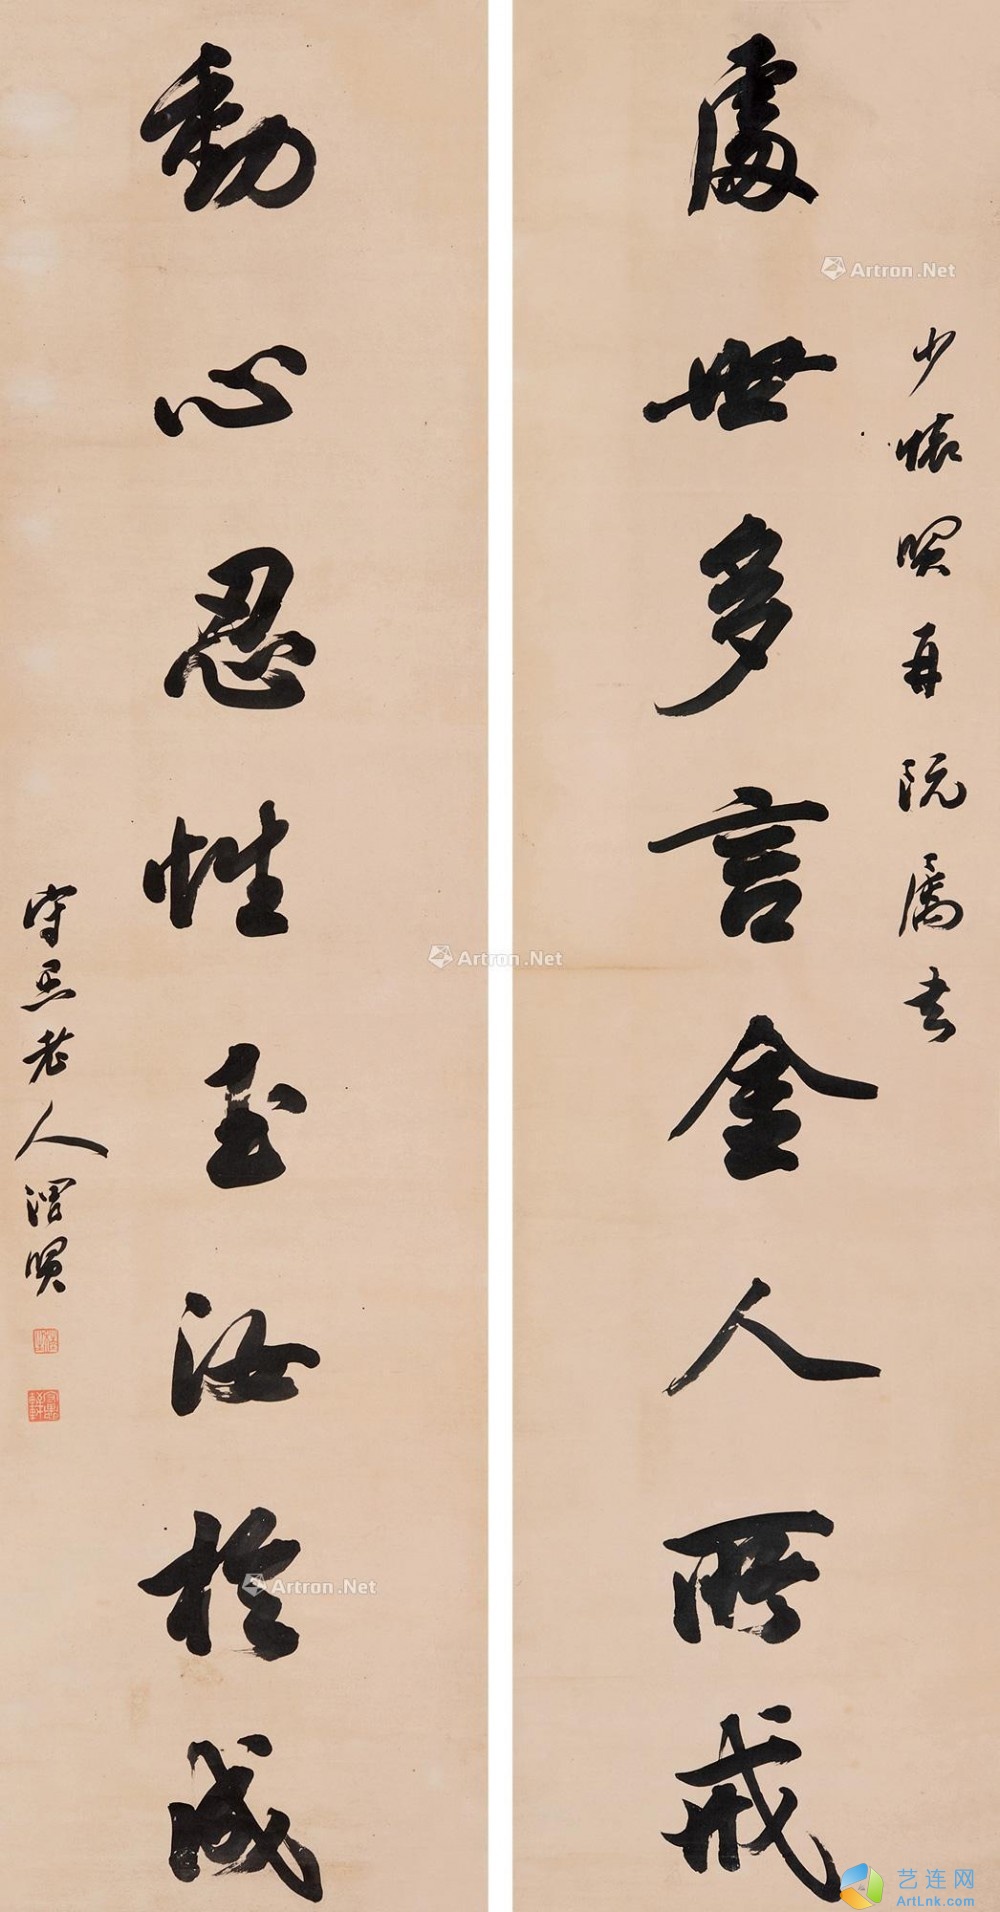 處世多言金人所戒
少懷賢再阮屬書
動心忍性玉汝於成
守愚老人
Artron.Net
Artron.Net
Artron.Net
艺连网
ArtLnk.com